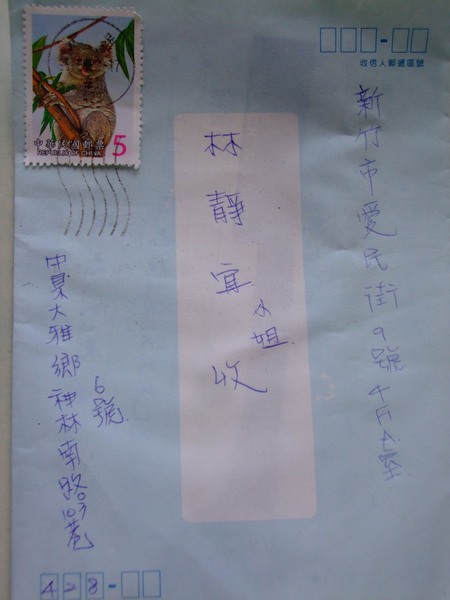 收信人郵遞區號
新竹市愛民街9號4F A室
林靜宜小姐 收
中縣大雅鄉神林南路103巷
6號
428
中華民國郵票
REPUBLIC OF CHINA
5